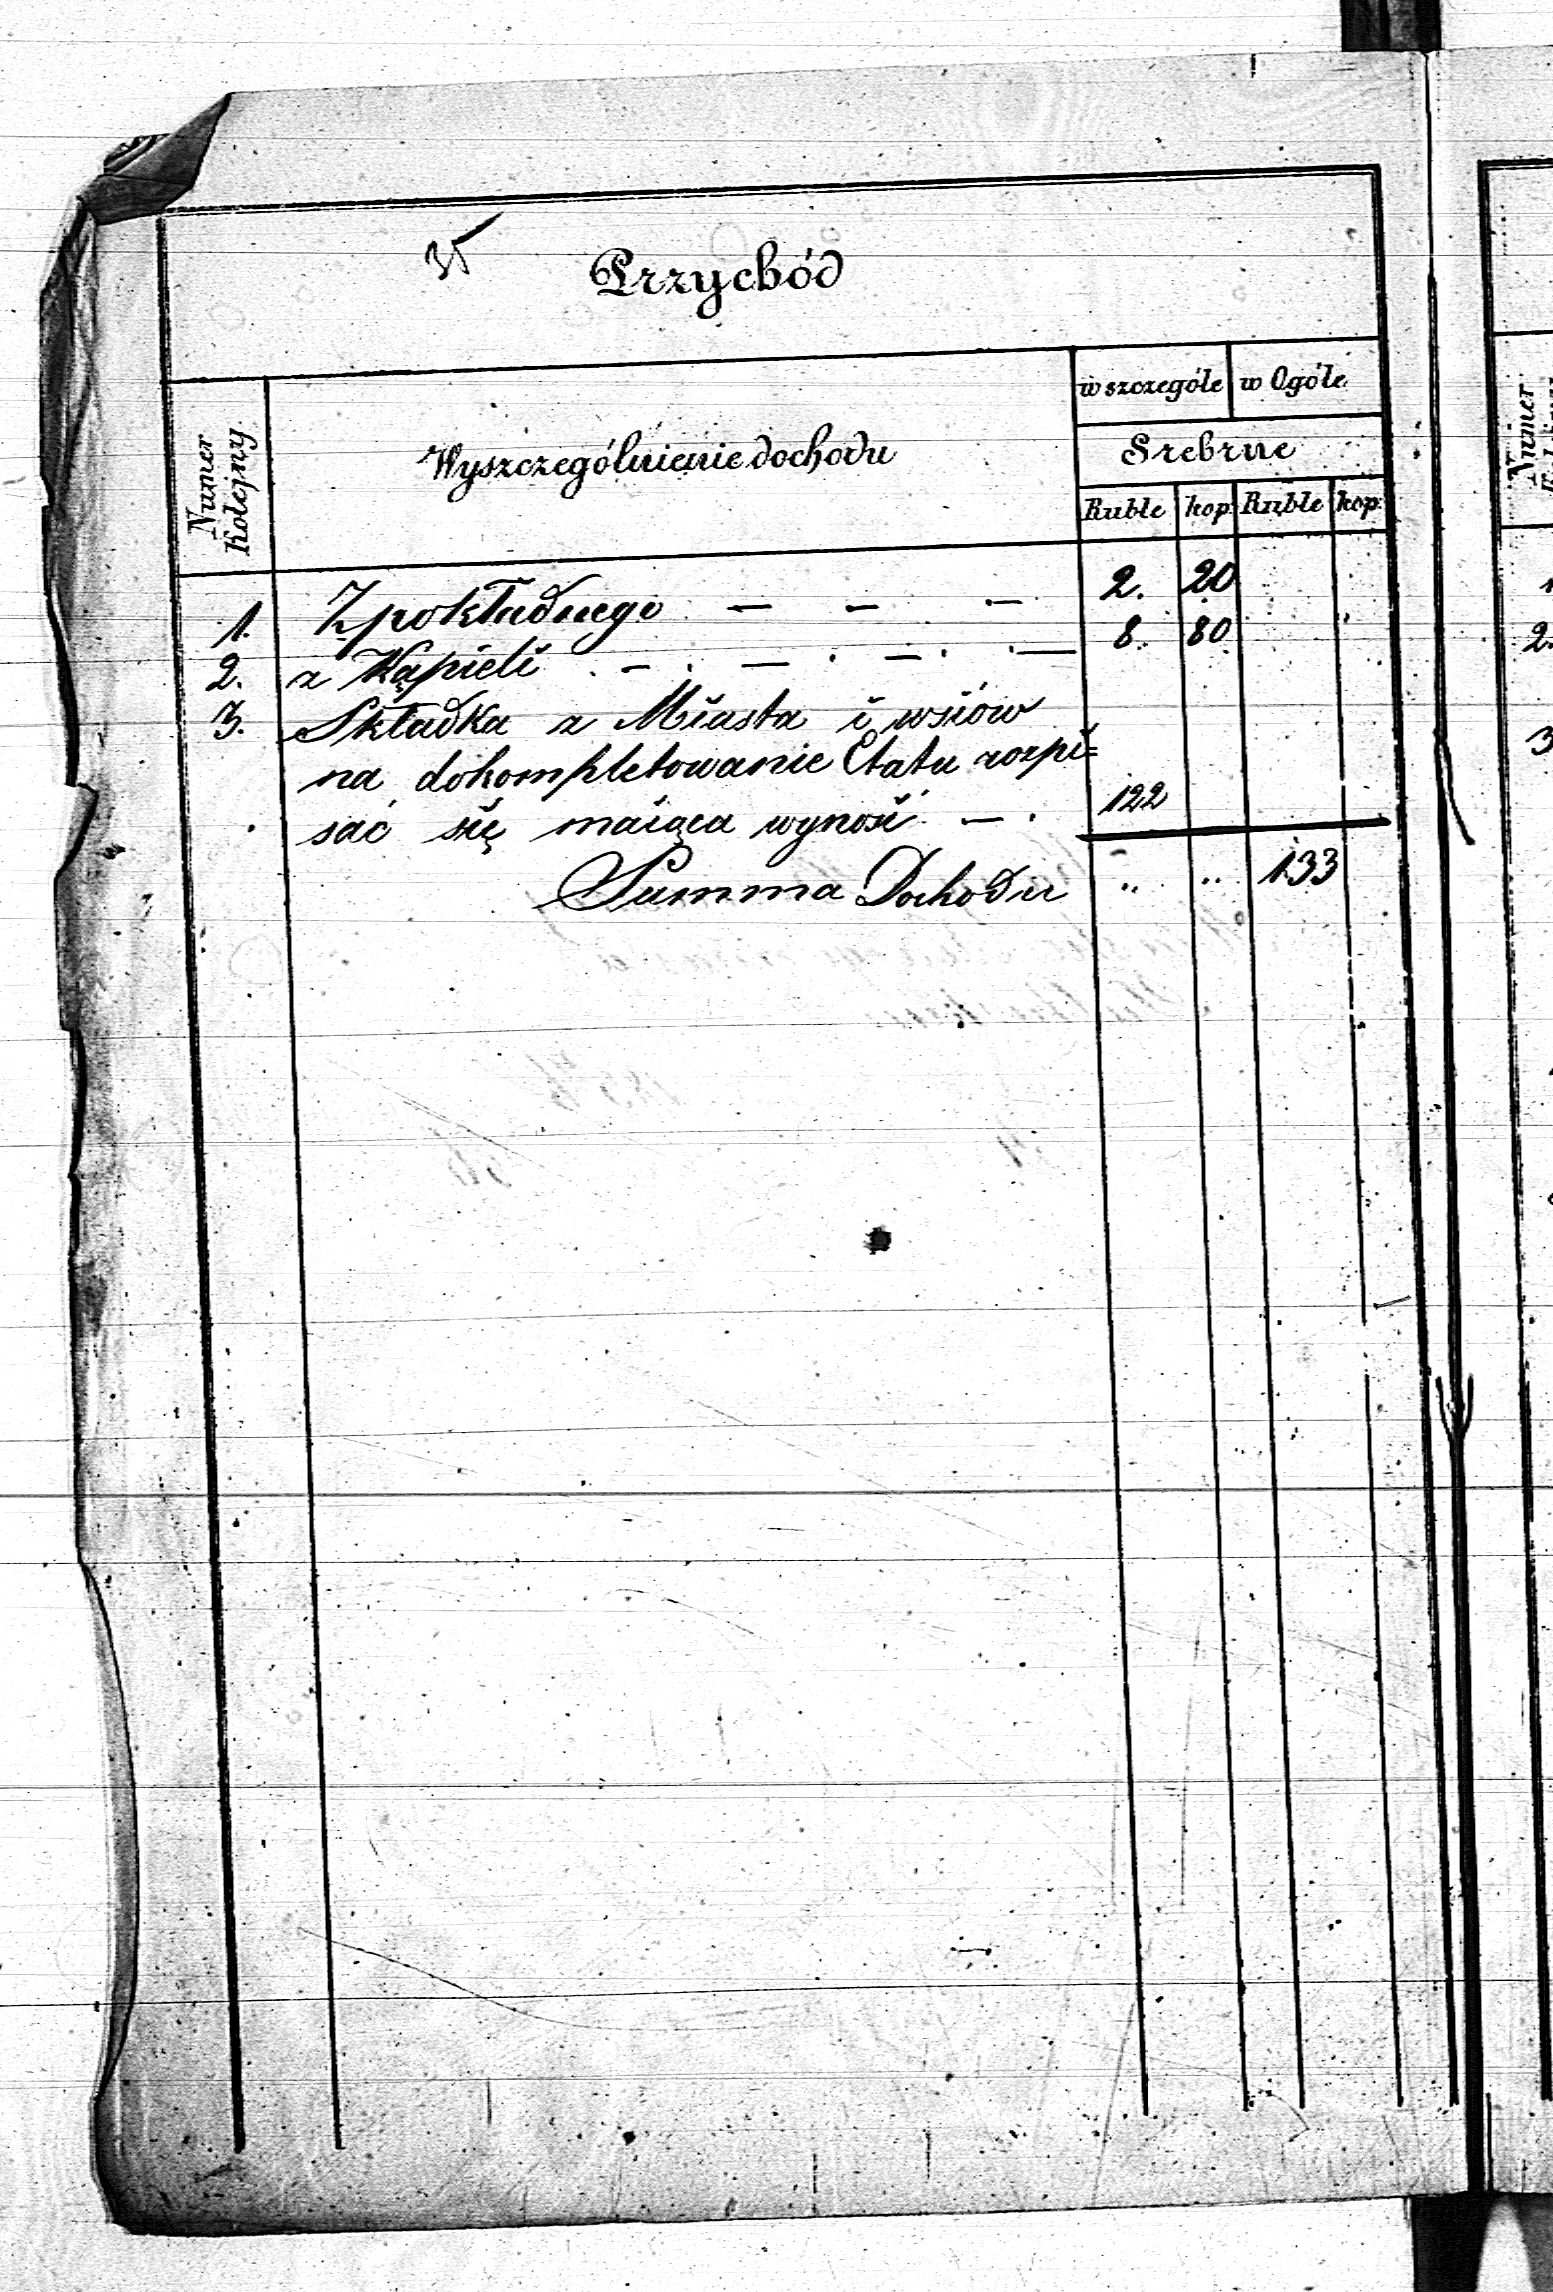 35
Przychód
Numer Kolejny
Wyszczególnienie dochodu
w szczególe w Ogóle
Srebrne
Ruble kop Ruble kop
1. Z pokładnego — — — 2. 20
2. z Kąpieli . — . — . — . — 8. 80
3. Składka z Miasta i wsiów
na dokompletowanie Etatu rozpi=
sać się maiąca wynosi — . 122
Summa Dochodu " " 133
Numer
1
2.
3